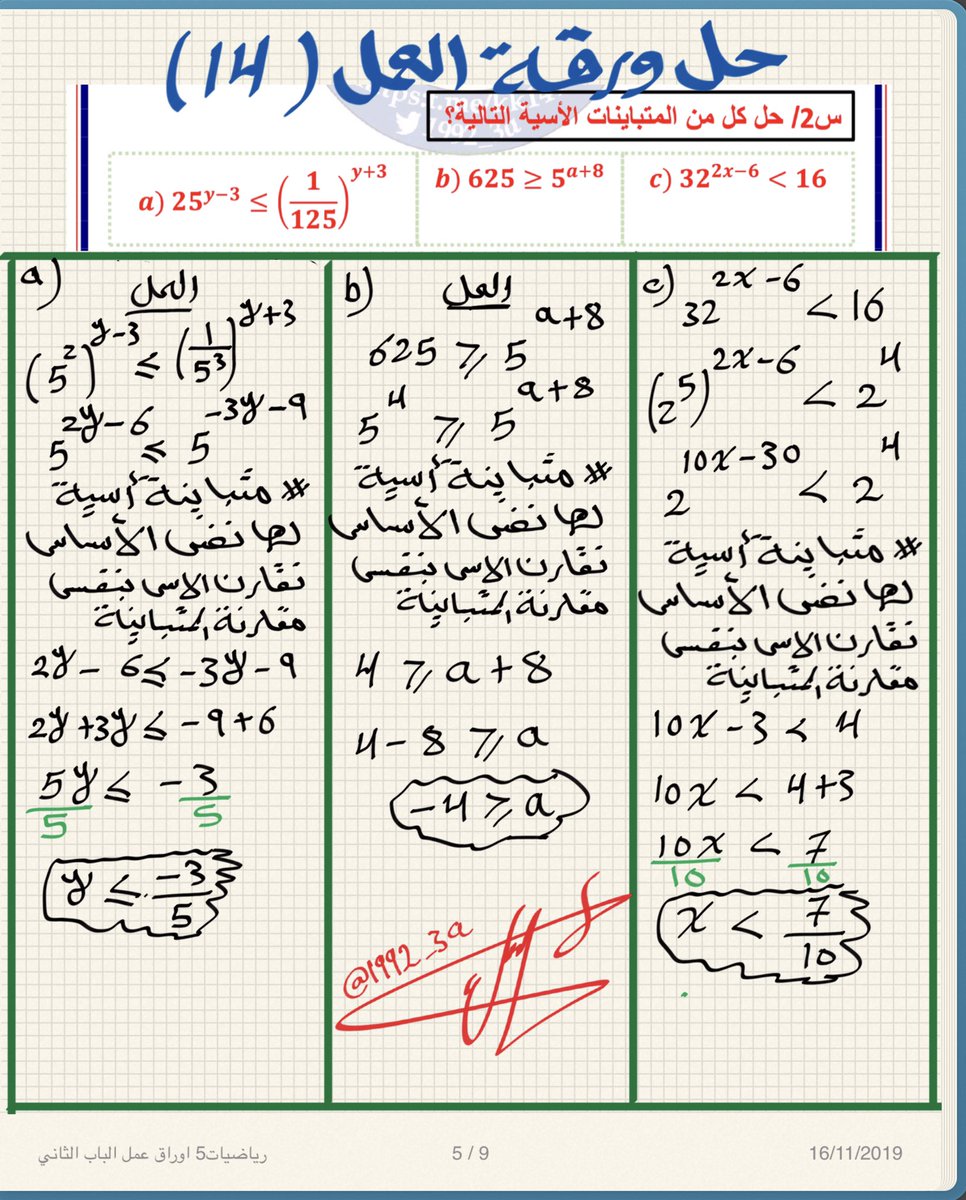 حل ورقة العمل (14)
س2/ حل كل من المتباينات الأسية التالية؟
1992_3a
a) 25^{y−3} ≤ (1/125)^{y+3}
b) 625 ≥ 5^{a+8}
c) 32^{2x−6} < 16
a)
الحل
(5^2)^{y−3} ≤ (1/5^3)^{y+3}
5^{2y−6} ≤ 5^{−3y−9}
# متباينة أسية
لها نفس الأساس
نقارن الاسس بنفس
مقارنة المتباينة
2y − 6 ≤ −3y − 9
2y + 3y ≤ −9 + 6
5y/5 ≤ −3/5
y ≤ −3/5
b)
الحل
625 ≥ 5^{a+8}
5^4 ≥ 5^{a+8}
# متباينة أسية
لها نفس الأساس
نقارن الاسس بنفس
مقارنة المتباينة
4 ≥ a + 8
4 − 8 ≥ a
−4 ≥ a
@1992_3a
c) 32^{2x−6} < 16
(2^5)^{2x−6} < 2^4
2^{10x−30} < 2^4
# متباينة أسية
لها نفس الأساس
نقارن الاسس بنفس
مقارنة المتباينة
10x − 3 < 4
10x < 4+3
10x/10 < 7/10
x < 7/10
رياضيات5 اوراق عمل الباب الثاني
5 / 9
16/11/2019